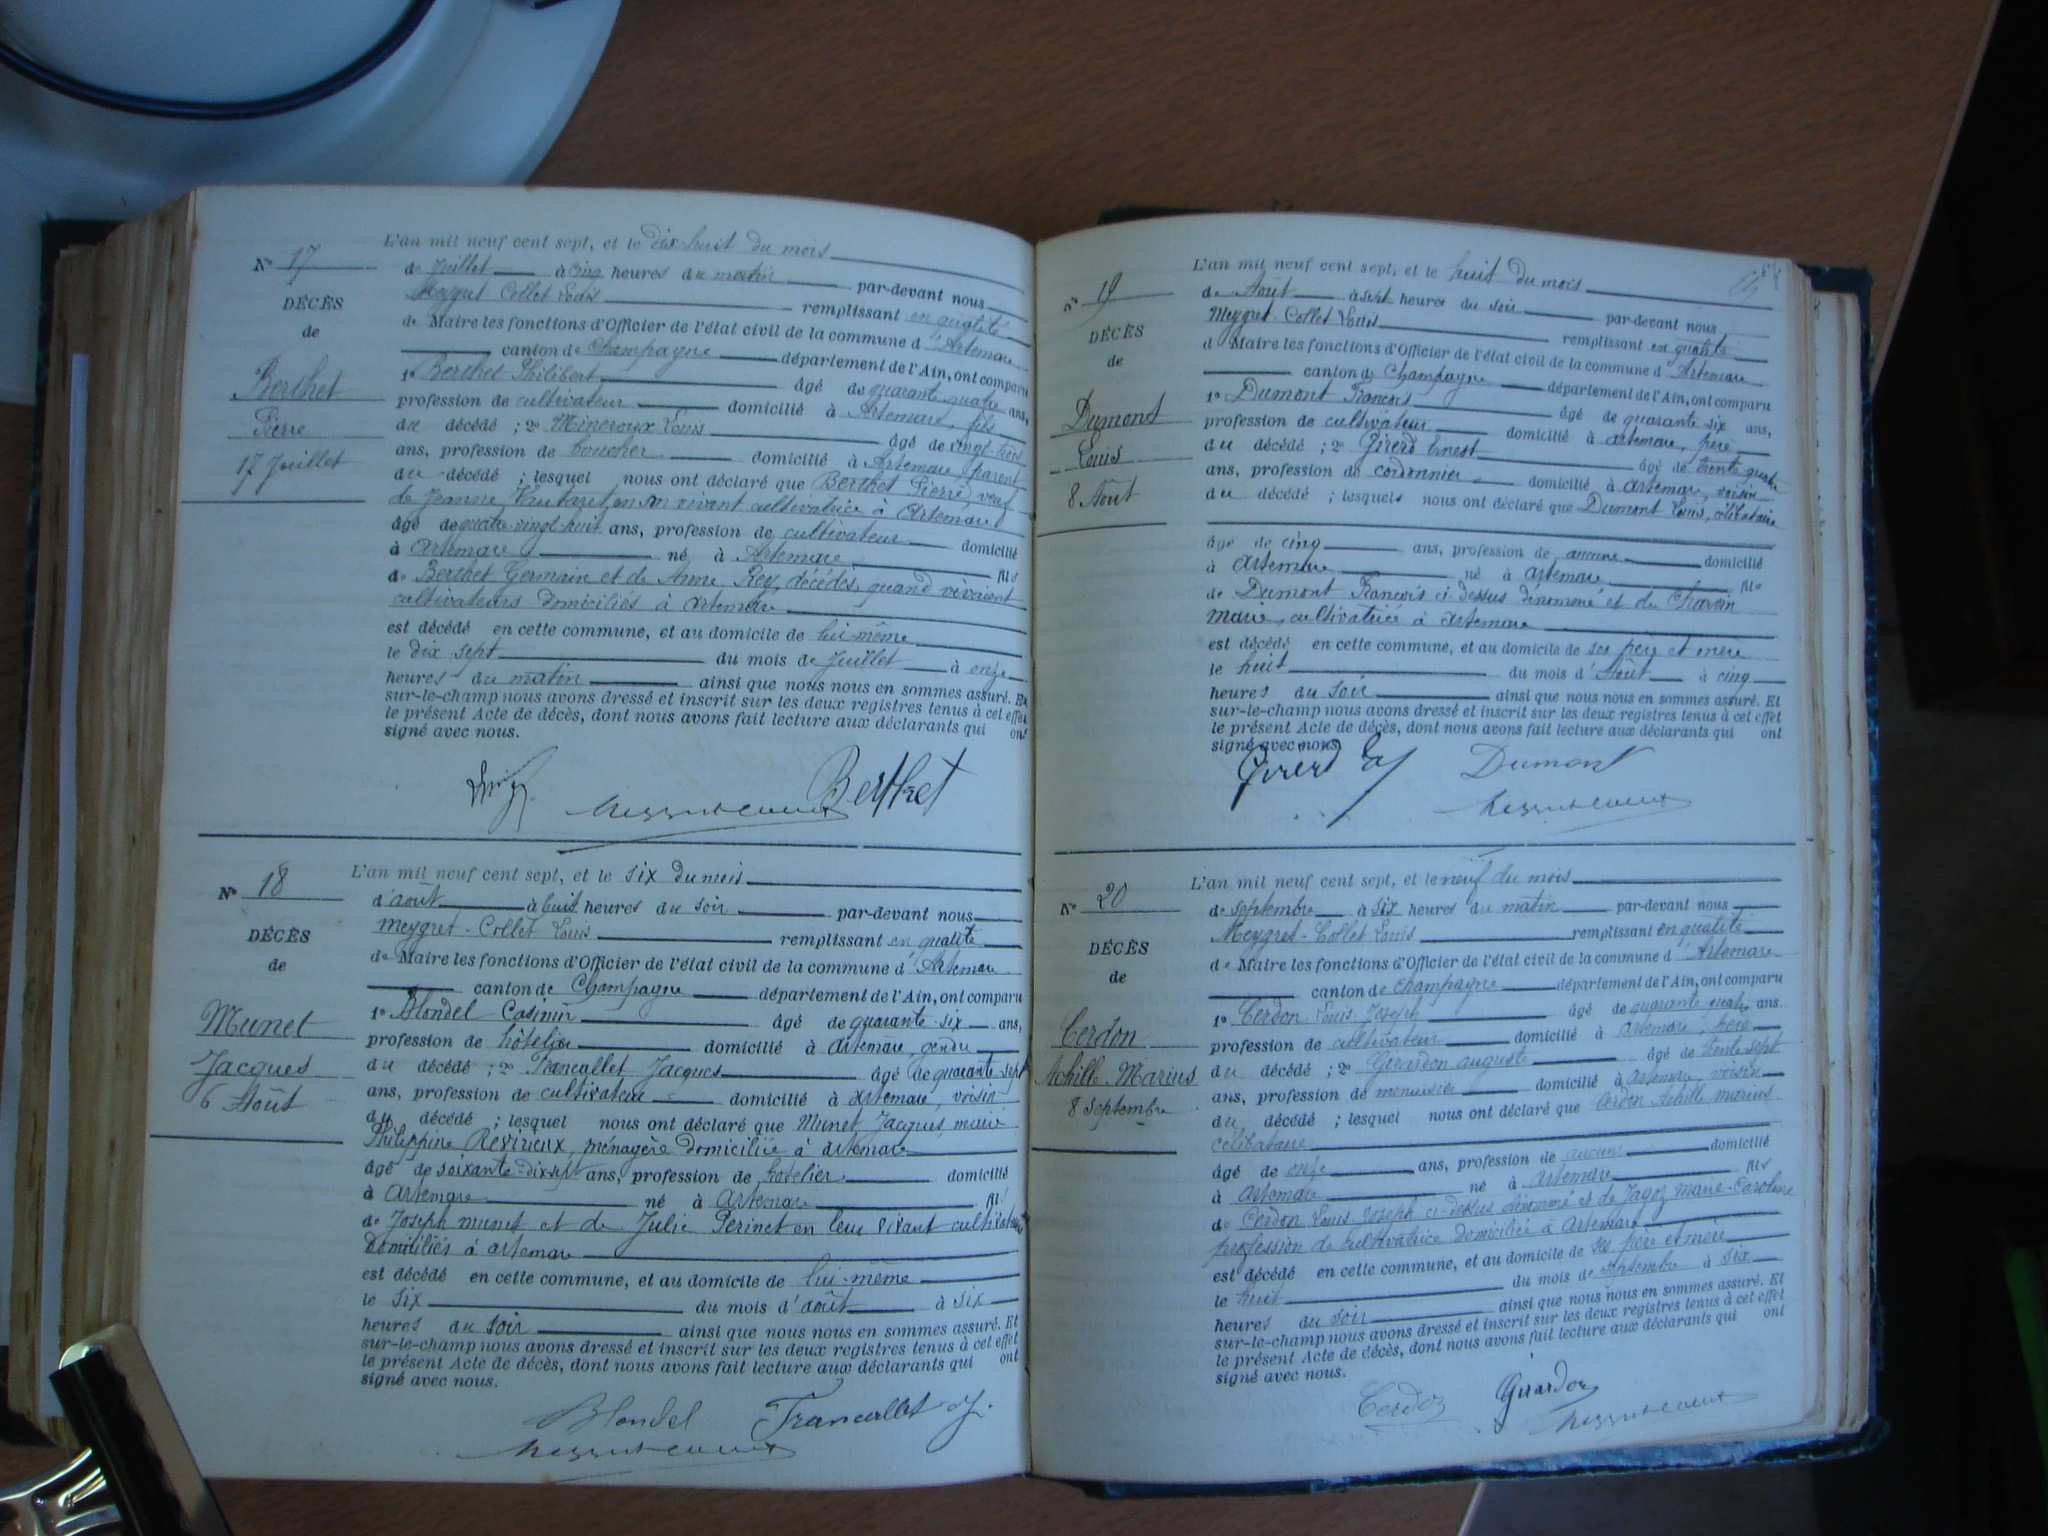 N° 17
DÉCÈS
de
Berthet
Pierre
17 Juillet
L'an mil neuf cent sept, et le dix huit du mois
de Juillet à cinq heures du matin par-devant nous
Meygret Collet Louis remplissant en qualité
de Maire les fonctions d'Officier de l'état civil de la commune d'Artemare
canton de Champagne département de l'Ain, ont comparu
1° Berthet Philibert âgé de quarante quatre ans,
profession de cultivateur domicilié à Artemare, fils
du décédé ; 2° Mincroux Louis âgé de vingt-trois
ans, profession de boucher domicilié à Artemare parent
du décédé ; lesquel nous ont déclaré que Berthet Pierre, veuf
de Jeanne en son vivant cultivatrice à Artemare
âgé de quatre-vingt-huit ans, profession de cultivateur domicilié
à Artemare né à Artemare fils
de Berthet Germain et de Anne Rey, décédés, quand vivaient
cultivateurs domiciliés à Artemare
est décédé en cette commune, et au domicile de lui-même
le dix sept du mois de Juillet à onze
heures du matin ainsi que nous nous en sommes assuré. Et
sur-le-champ nous avons dressé et inscrit sur les deux registres tenus à cet effet
le présent Acte de décès, dont nous avons fait lecture aux déclarants qui ont
signé avec nous.
Berthet
N° 18
DÉCÈS
de
Munet
Jacques
6 Août
L'an mil neuf cent sept, et le six du mois
d'août à huit heures du soir par-devant nous
Meygret-Collet Louis remplissant en qualité
de Maire les fonctions d'Officier de l'état civil de la commune d'Artemare
canton de Champagne département de l'Ain, ont comparu
1° Blondel Casimir âgé de quarante-six ans,
profession de hôtelier domicilié à Artemare, gendre
du décédé ; 2° Francallet Jacques âgé de quarante sept
ans, profession de cultivateur domicilié à Artemare, voisin
du décédé ; lesquel nous ont déclaré que Munet Jacques, marié
Philippine Revirieux, ménagère domiciliée à artemare
âgé de soixante-dix-sept ans, profession de hôtelier domicilié
à Artemare né à Artemare fils
de Joseph munet et de Julie Perinet en leur vivant cultivateurs
domiciliés à artemare
est décédé en cette commune, et au domicile de lui-même
le six du mois d'août à six
heures du soir ainsi que nous nous en sommes assuré. Et
sur-le-champ nous avons dressé et inscrit sur les deux registres tenus à cet effet
le présent Acte de décès, dont nous avons fait lecture aux déclarants qui ont
signé avec nous.
Blondel Francallet J.
N° 19
DÉCÈS
de
Dumont
Louis
8 Août
L'an mil neuf cent sept, et le huit du mois
de Août à sept heures du soir par-devant nous
Meygret-Collet Louis remplissant en qualité
d Maire les fonctions d'Officier de l'état civil de la commune d'Artemare
canton de Champagne département de l'Ain, ont comparu
1° Dumont François âgé de quarante six ans,
profession de cultivateur domicilié à artemare, père
du décédé ; 2° Girerd Ernest âgé de trente quatre
ans, profession de cordonnier domicilié à artemare, voisin
du décédé ; lesquels nous ont déclaré que Dumont Louis, célibataire
âgé de cinq ans, profession de aucune domicilié
à Artemare né à Artemare fils
de Dumont François ci-dessus dénommé et de Charvin
Marie, cultivatrice à Artemare
est décédé en cette commune, et au domicile de ses père et mère
le huit du mois d'Août à cinq
heures du soir ainsi que nous nous en sommes assuré. Et
sur-le-champ nous avons dressé et inscrit sur les deux registres tenus à cet effet
le présent Acte de décès, dont nous avons fait lecture aux déclarants qui ont
signé avec nous.
Girerd Dumont
N° 20
DÉCÈS
de
Cerdon
Achille Marius
8 Septembre
L'an mil neuf cent sept, et le neuf du mois
de septembre à six heures du matin par-devant nous
Meygret-Collet Louis remplissant en qualité
de Maire les fonctions d'Officier de l'état civil de la commune d'Artemare
canton de Champagne département de l'Ain, ont comparu
1° Cerdon Louis Joseph âgé de quarante quatre ans.
profession de cultivateur domicilié à artemare, père
du décédé ; 2° Girardon auguste âgé de trente sept
ans, profession de menuisier domicilié à Artemare, voisin
du décédé ; lesquel nous ont déclaré que Cerdon Achille Marius
célibataire
âgé de onze ans, profession de aucune domicilié
à Artemare né à Artemare fils
de Cerdon Louis Joseph ci-dessus dénommé et de Jagoz Marie-Caroline
profession de cultivatrice domiciliée à Artemare
est décédé en cette commune, et au domicile de ses père et mère
le huit du mois de septembre à six
heures du soir ainsi que nous nous en sommes assuré. Et
sur-le-champ nous avons dressé et inscrit sur les deux registres tenus à cet effet
le présent Acte de décès, dont nous avons fait lecture aux déclarants qui ont
signé avec nous.
Cerdon Girardon